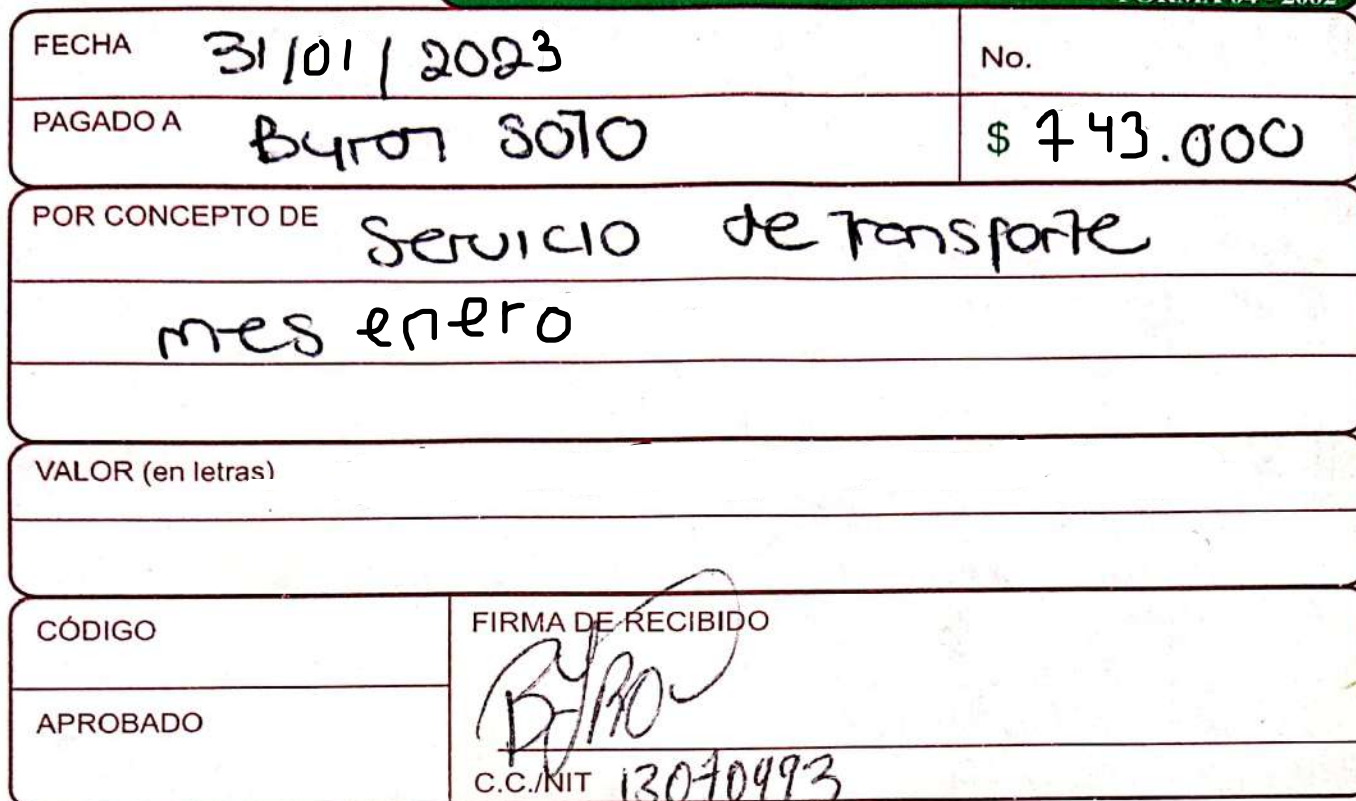 FECHA 31/01/2023 No.
PAGADO A Byron Soto $ 743.000
POR CONCEPTO DE Servicio de Transporte
mes enero
VALOR (en letras)
CÓDIGO FIRMA DE RECIBIDO
Byro
APROBADO
C.C./NIT 13070493